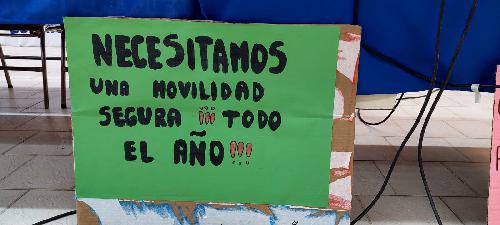 NECESITAMOS
UNA MOVILIDAD
SEGURA ¡¡¡ TODO
EL AÑO!!!